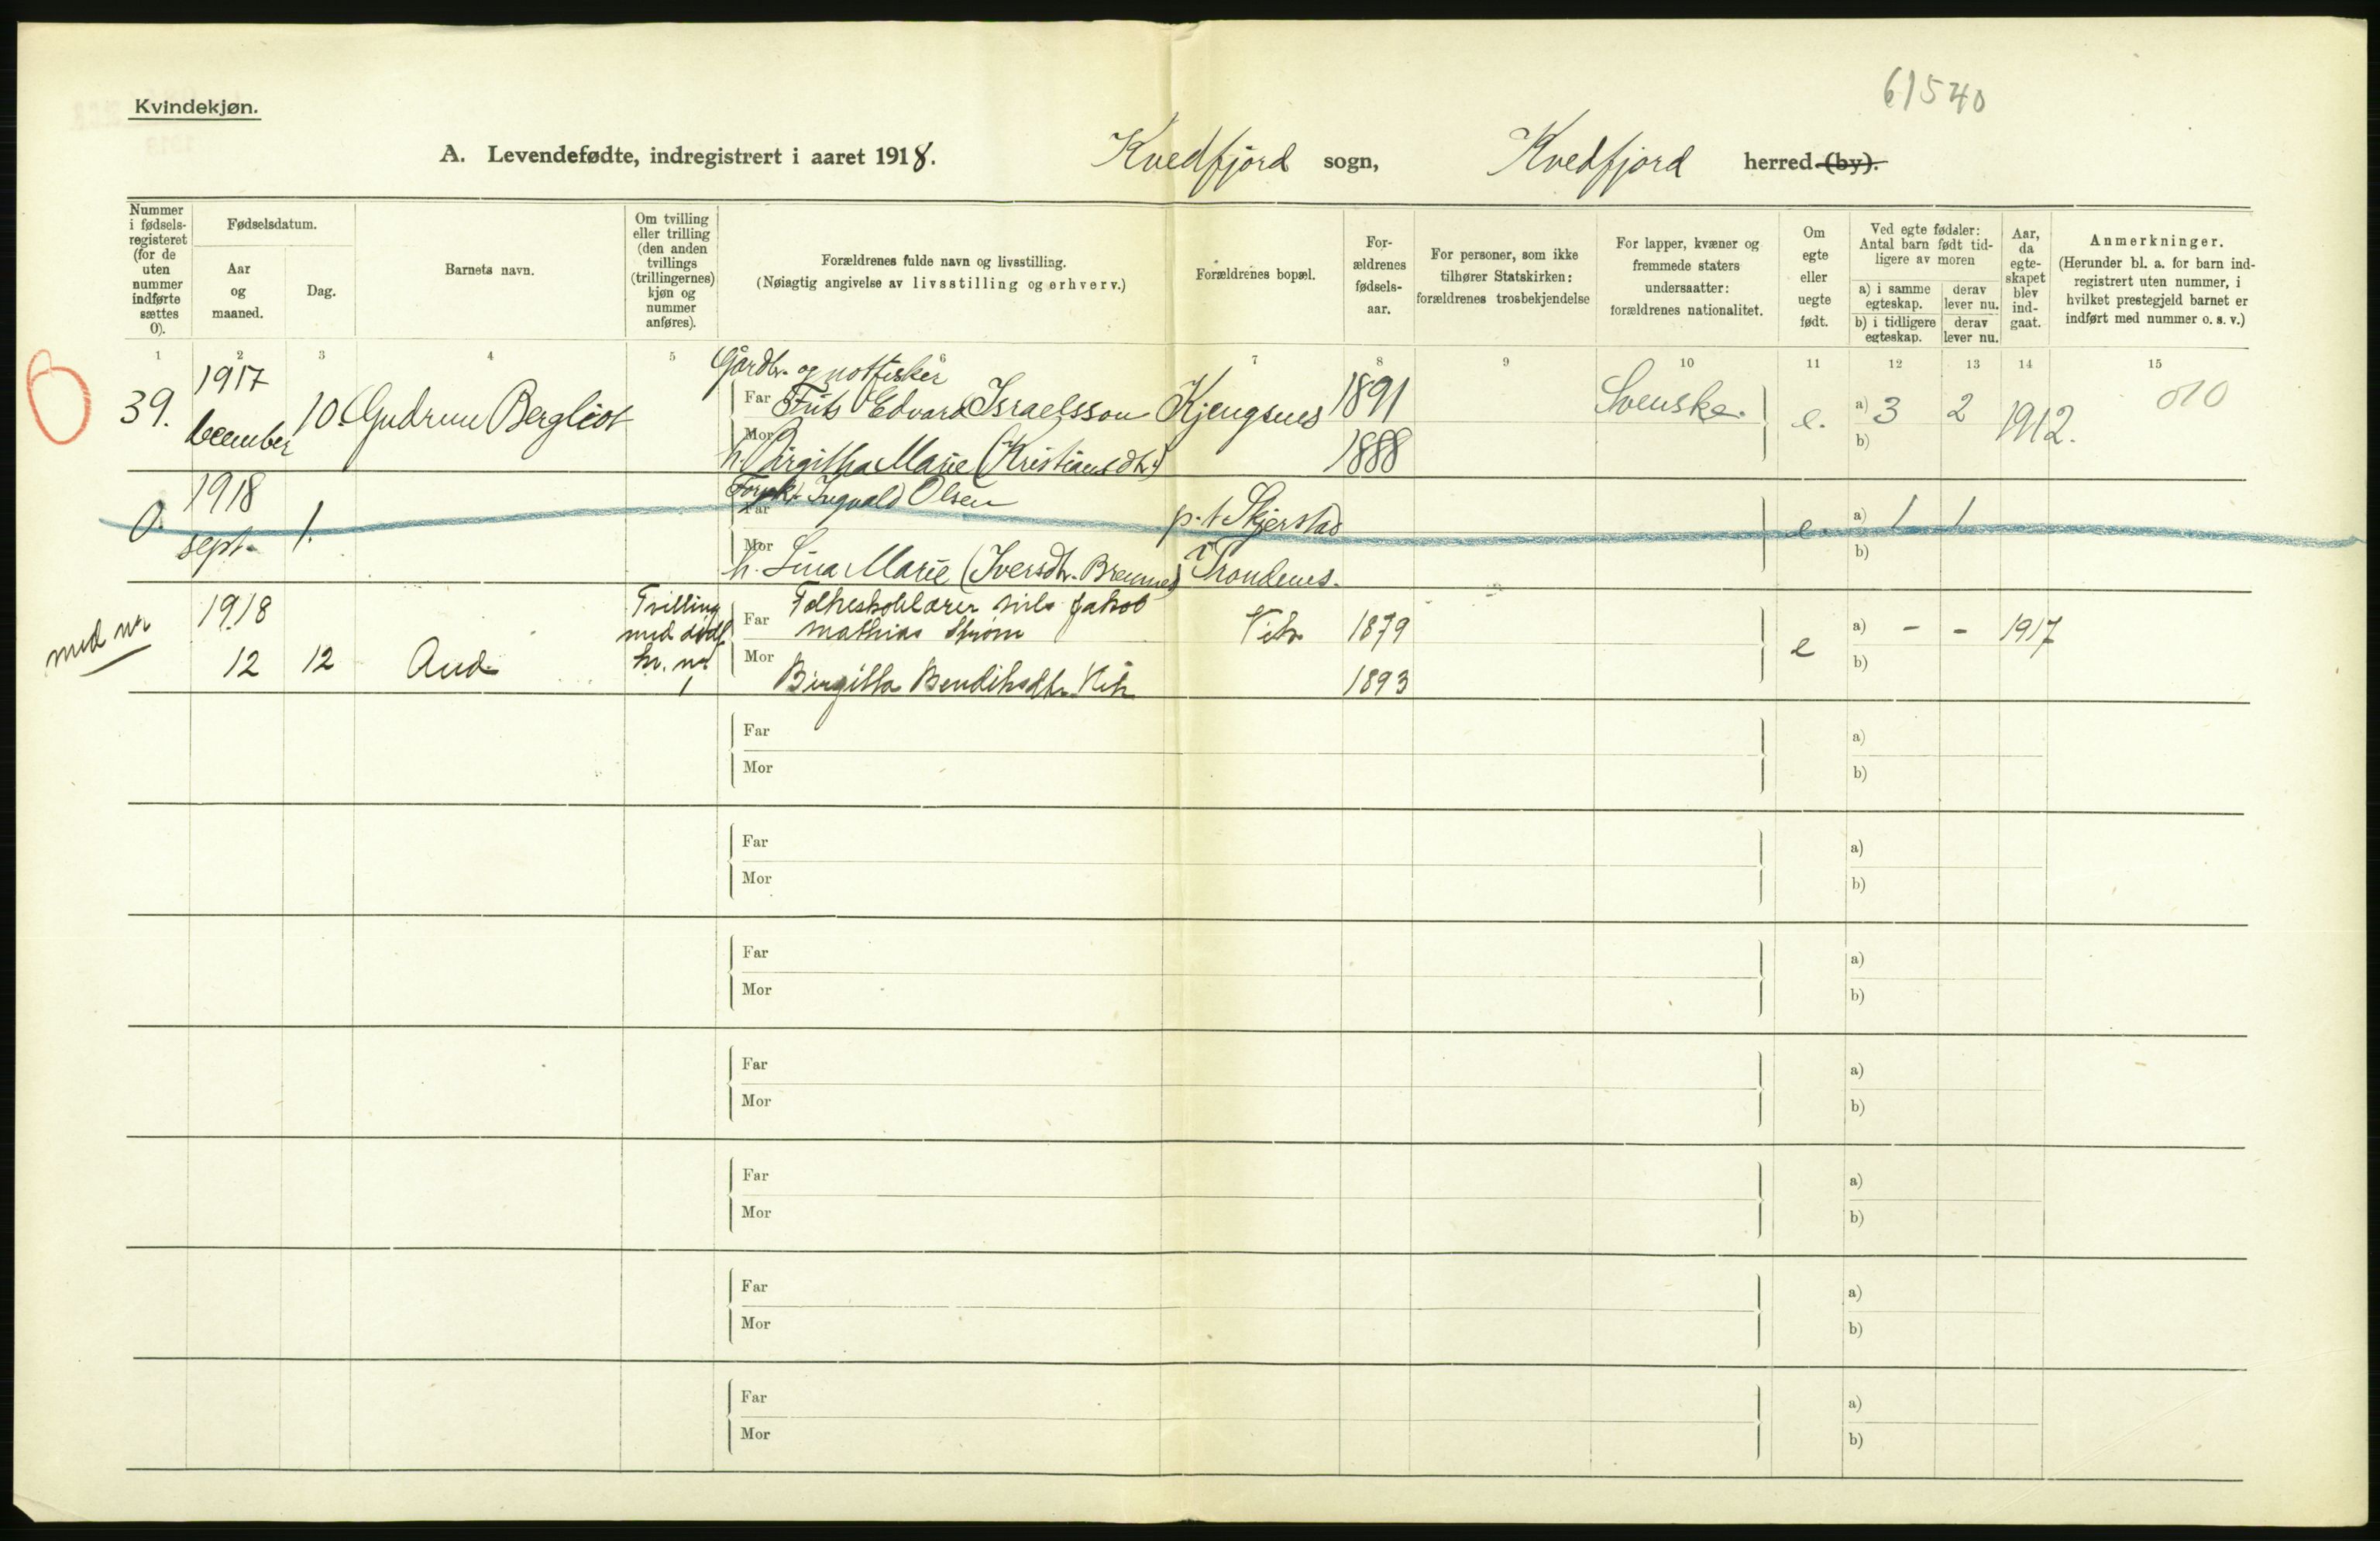 61540
Kvindekjøn.
A. Levendefødte, indregistrert i aaret 1918. Kvedfjord sogn, Kvedfjord herred (by).
Nummer i fødsels-registeret (for de uten nummer indførte sættes 0).
Fødselsdatum.
Aar og maaned.
Dag.
Barnets navn.
Om tvilling eller trilling (den anden tvillings (trillingernes) kjøn og nummer anføres).
Forældrenes fulde navn og livsstilling.
(Nøiagtig angivelse av livsstilling og erhverv.)
Forældrenes bopæl.
For-ældrenes fødsels-aar.
For personer, som ikke tilhører Statskirken: forældrenes trosbekjendelse
For lapper, kvæner og fremmede staters undersaatter: forældrenes nationalitet.
Om egte eller uegte født.
Ved egte fødsler: Antal barn født tid-ligere av moren
a) i samme egteskap. derav lever nu.
b) i tidligere egteskap. derav lever nu.
Aar, da egte-skapet blev ind-gaat.
Anmerkninger.
(Herunder bl. a. for barn ind-registrert uten nummer, i hvilket prestegjeld barnet er indført med nummer o. s. v.)
1 2 3 4 5 6 7 8 9 10 11 12 13 14 15
1917 Gårdbr. og notfisker
39. December 10. Gudrun Bergliot Far Frits Edvard Israelsson Kjengsnes 1891 Svenske. e. a) 3 2 1912. 010
Mor h. Birgitha Marie (Kristiansdtr.) 1888 b)
1918 Far Ingvald Olsen p.t. Skjerstad
0. sept. 1. e. a) 1 1
Mor h. Lina Marie (Iversdtr. Bremnes) i Trondenes. b)
med nr 1918 Tvilling Far Folkeskolelærer Nils Jakob
med dødf. Mathias Strøm Vik 1879 a) - - 1917
12 12 Aud hr. nr. Mor e b)
1 Birgitha Bendiksdtr. Vik 1893
Far a)
Mor b)
Far a)
Mor b)
Far a)
Mor b)
Far a)
Mor b)
Far a)
Mor b)
Far a)
Mor b)
Far a)
Mor b)